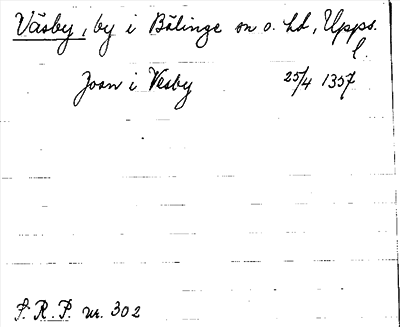 Väsby, by i Bälinge sn o. hd, Upps.
l.
Joan i Vesby 25/4 1357
S. R. P. nr. 302